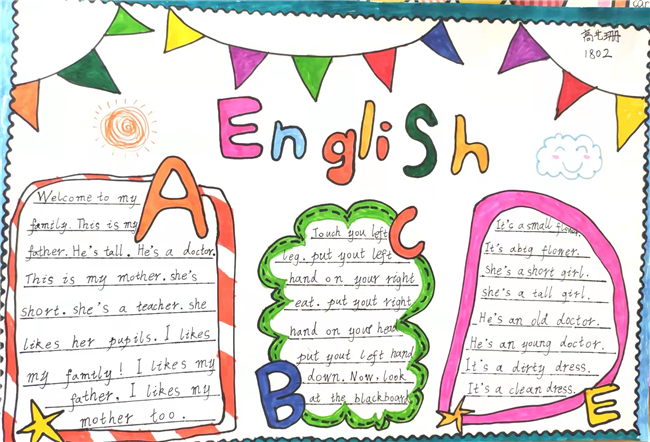 高先珊
1802
English
A
Welcome to my
family. This is my
father. He's tall. He's a doctor.
This is my mother. she's
short. she's a teacher. she
likes her pupils. I likes
my family! I likes my
father. I likes my
mother too.
C
Touch you left
leg. put yout left
hand on your right
eat. put yout right
hand on your head
put yout left hand
down. Now. look
at the blackboard
B
It's a small flower.
It's a big flower.
she's a short girl.
she's a tall girl.
He's an old doctor.
He's an young doctor.
It's a dirty dress.
It's a clean dress.
E
car